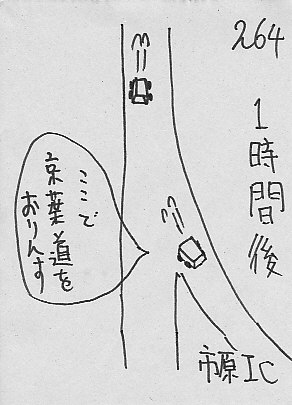 264
1時間後
ここで
京葉道を
おりんす
市原IC